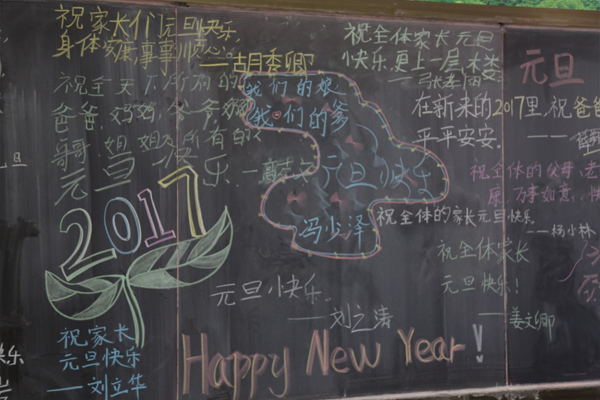 祝家长们元旦快乐,
身体安康,事事顺心
——胡秀卿
祝全天下所有的
爸爸,妈妈,爷爷
哥哥,姐姐,所有的
元旦快乐
2017
祝家长
元旦快乐
——刘立华
我们的娘
我们的爹
元旦快乐
冯少泽
祝全体家长元旦
快乐.更上一层木娄
在新来的2017里,祝爸爸
平平安安.
元旦
祝全体的父母,老
康.万事如意,快
祝全体的家长元旦快乐.
——杨小林
祝全体家长
元旦快乐!
——姜文卿
元旦快乐.
——刘之涛
Happy New Year!
快乐